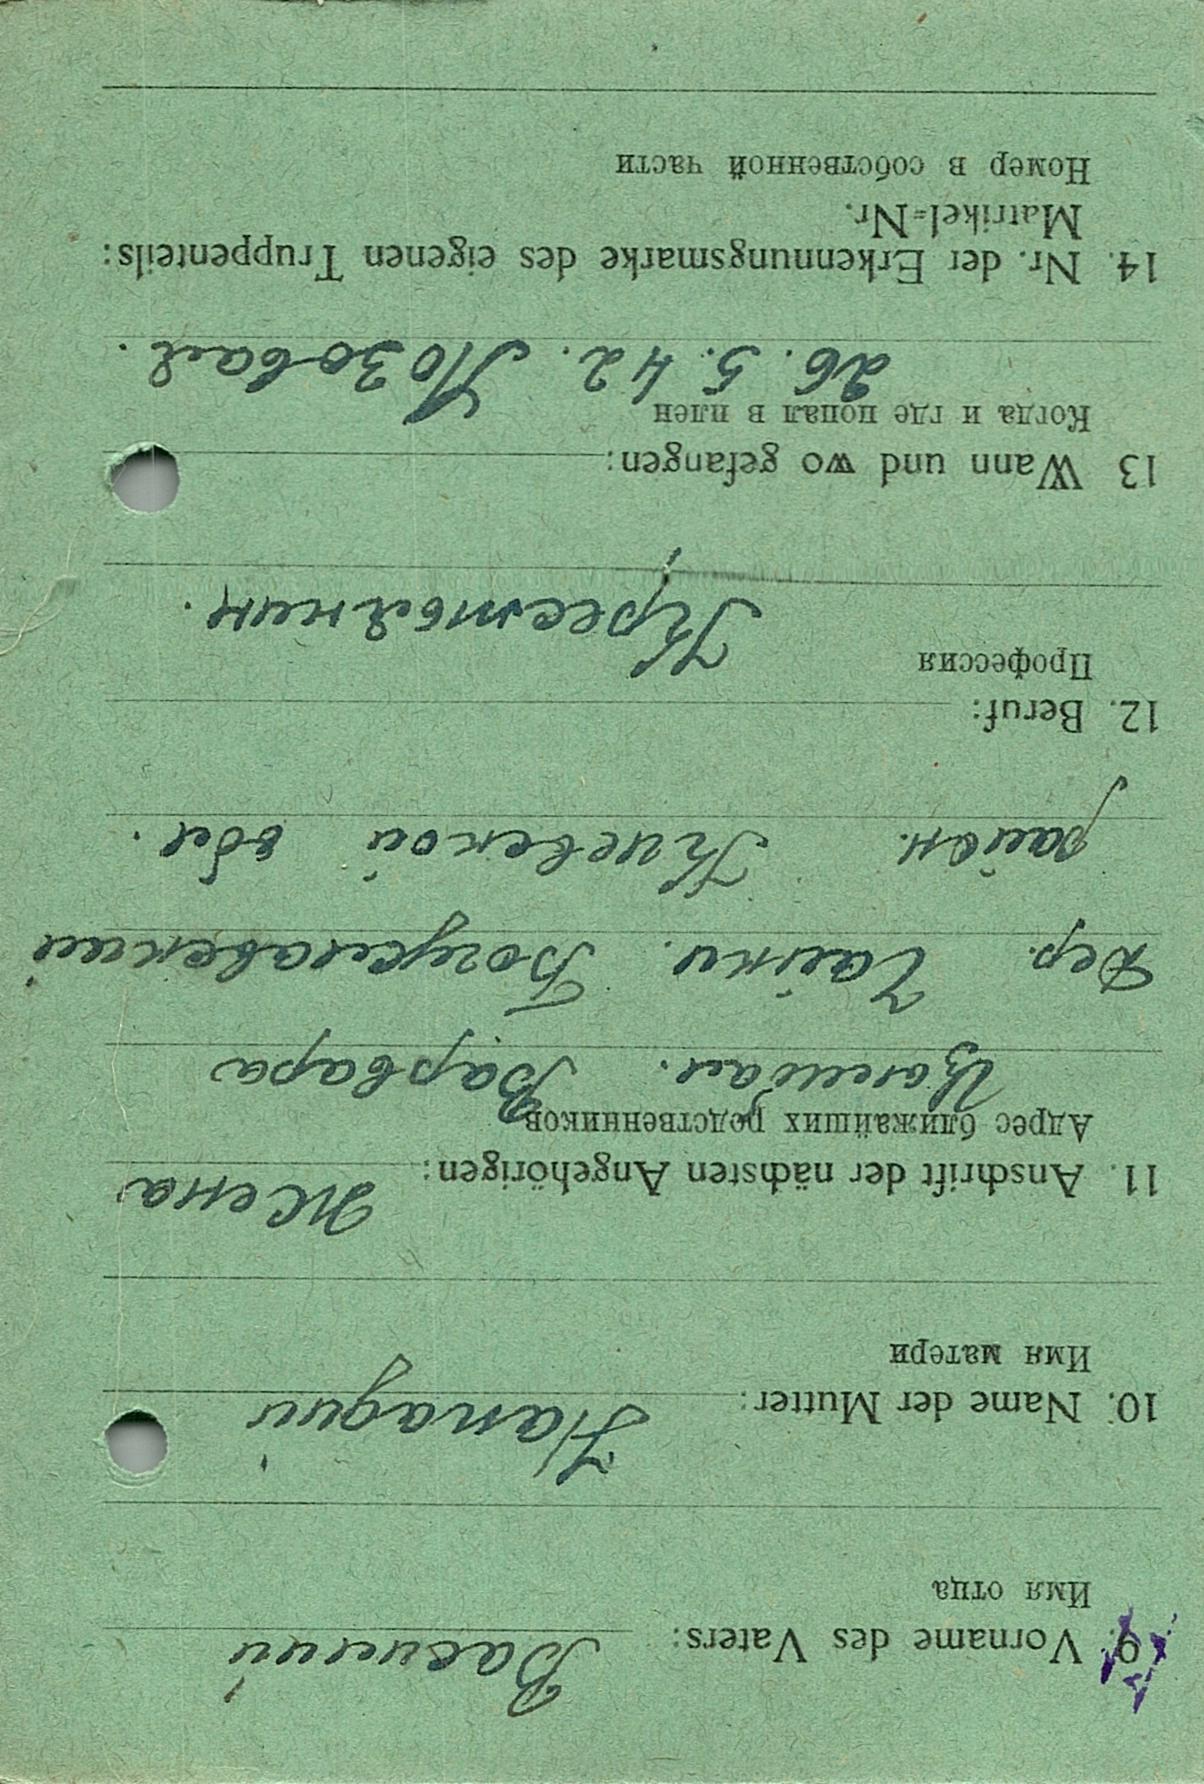 9. Vorname des Vaters: Василий
Имя отца
10. Name der Mutter:
Имя матери
11. Anschrift der nächsten Angehörigen: Жена
Адрес ближайших родственников
Варвара
Дер. Чайки. Богуславский
район. Киевской обл.
12. Beruf:
Профессия
Крестьянин.
13 Wann und wo gefangen:
Когда и где попал в плен
26. 5. 42. Лозовая.
14. Nr. der Erkennungsmarke des eigenen Truppenteils:
Matrikel=Nr.
Номер в собственной части